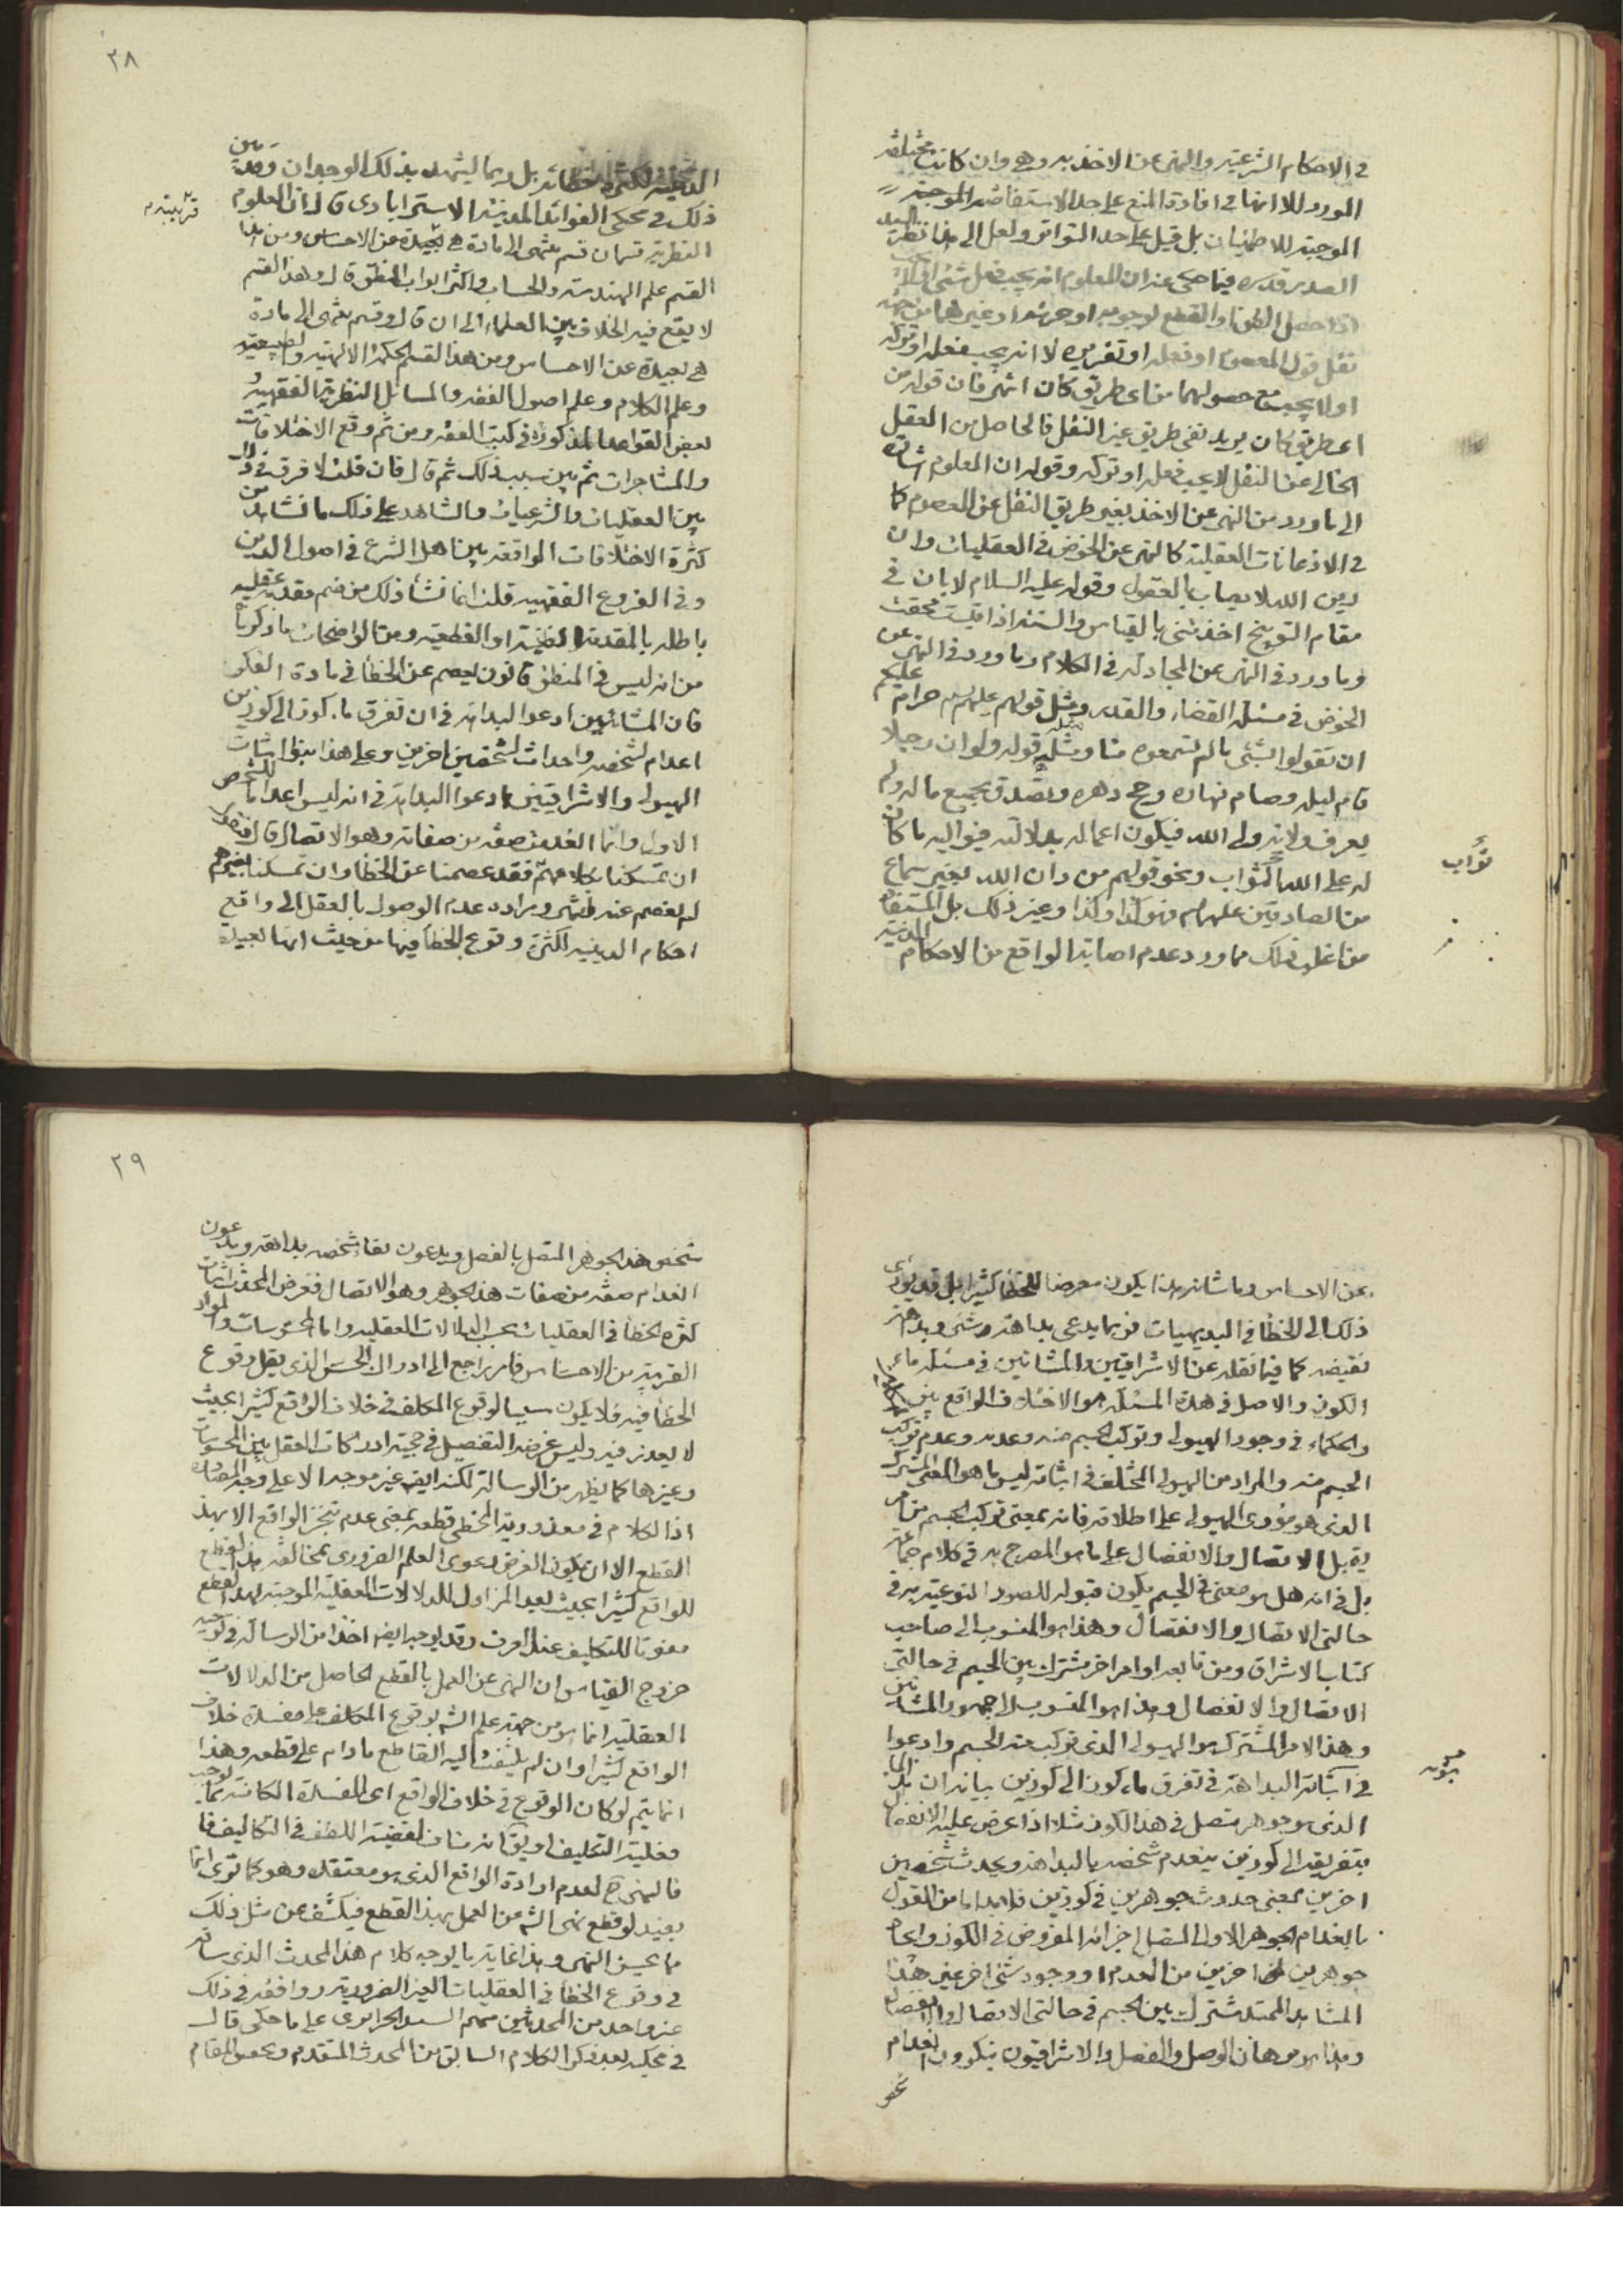 في الاحكام الشرعية والنهى عن الاخذ به وهي وان كانت مختلفة
المورد الا انها في افادة المنع على حد الاستفاضة الموجبة
الموجبة للاطمينان بل قيل على حد التواتر ولعل الى هذا نظر السيد
الصدر قدس سره فيما حكى عنه ان المعلوم انه يجب فعل شئ او تركه
اذا حصل الظن او القطع لوجوبه او حرمته او غيرهما من جهة
نقل قول المعصوم او فعله او تقريره لا انه يجب فعله او تركه
او لا يجب مع حصولهما من اى طريق كان انتهى فان قوله من
اى طريق كان يريد نفى طريق غير النقل فالحاصل من العقل
الخالى عن النقل لا يجب فعله او تركه وقوله ان المعلوم اشارة
الى ما ورد من النهى عن الاخذ بغير طريق النقل عن المعصوم كما
في الاذعانات العقلية كالنهى عن الخوض في العقليات وان
دين الله لا يصاب بالعقول وقوله عليه السلام لابان في
مقام التوبيخ اخذتنى بالقياس والسنة اذا قيست محقت
وما ورد في النهى عن المجادلة في الكلام وما ورد في النهى عن
الخوض في مسئلة القضاء والقدر ومثل قولهم عليهم السلام حرام عليكم
ان تقولوا بشئ ما لم تسمعوه منا ومثله قوله ولو ان رجلا
قام ليله وصام نهاره وحج دهره وتصدق بجميع ماله ولم
يعرف ولاية ولى الله فيكون اعماله بدلالته فيواليه ما كان
له على الله ثواب ونحو قولهم من دان الله بغير سماع
من الصادقين عليهم السلام فهو كذا وكذا وغير ذلك بل المستفاد
من اغلب ذلك مما ورد عدم اصابة الواقع من الاحكام الدينية
ثواب
٢٨
الدينية لكثرة خطائه بل ربما يشهد بذلك الوجدان وقد بين
ذلك في محكى الفوائد المدنية الاسترابادى قال ان العلوم
النظرية قسمان قسم ينتهى الى مادة هي قريبة من الاحساس ومن هذا
القسم علم الهندسة والحساب واكثر ابواب المنطق قال وهذا القسم
لا يقع فيه الخلاف بين العلماء الى ان قال وقسم ينتهى الى مادة
هي بعيدة عن الاحساس ومن هذا القسم الحكمة الالهية والطبيعية
وعلم الكلام وعلم اصول الفقه والمسائل النظرية الفقهية و
بعض القواعد المذكورة في كتب الفقه ومن ثم وقع الاختلافات
والمشاجرات ثم بين سبب ذلك ثم قال فان قلت لا فرق في ذلك
بين العقليات والشرعيات والشاهد على ذلك ما نشاهد من
كثرة الاختلافات الواقعة بين اهل الشرع في اصول الدين
وفي الفروع الفقهية قلت انما نشأ ذلك من ضم مقدمة عقلية
باطلة بالمقدمة النقلية الظنية او القطعية ومن الواضحات ما ذكرنا
من انه ليس في المنطق قانون يعصم عن الخطأ في مادة الفكر
فان المشائيين ادعوا البداهة في ان تفرق ماء كوز الى كوزين
اعدام لشخصه واحداث لشخصين اخرين وعلى هذا بنوا اثبات
الهيولى والاشراقيين ادعوا البداهة في انه ليس اعداما للشخص
الاول وانما انعدمت صفة من صفاته وهو الاتصال قال فنقول
ان تمسكنا بكلامهم فقد عصمنا عن الخطأ وان تمسكنا بغيرهم
لم نعصم عنه انتهى ومراده عدم الوصول بالعقل الى واقع
احكام الدينية لكثرة وقوع الخطأ فيها من حيث انها بعيدة
عن الاحساس وما شانه هذا يكون معرضا للخطأ كثيرا بل قد يؤدى
ذلك الى الخطأ في البديهيات فربما يدعى بداهة شئ وبداهة
نقيضه كما فيما نقله عن الاشراقيين والمشائين في مسئلة ماء
الكوز والاصل في هذه المسئلة هو الاختلاف الواقع بين
والحكماء في وجود الهيولى وتركب الجسم منه وعدمه وعدم تركب
الجسم منه والمراد من الهيولى المختلف في اثباته ليس ما هو المعنى المشترك
الذى هو مؤدى الهيولى على اطلاقه فانه بمعنى تركب الجسم من امر
يقبل الاتصال والانفصال على ما هو المصرح به في كلام جماعة
بل في انه هل هو معنى في الجسم يكون قبوله للصور النوعية به في
حالتى الاتصال والانفصال وهذا هو المنسوب الى صاحب
كتاب الاشراق ومن تابعه او امر اخر مشترك بين الجسم في حالتى
الاتصال والانفصال وهذا هو المنسوب الى جمهور المشائين
وهذا الامر المشترك هو الهيولى الذى تركب منه الجسم وادعوا
في اثباته البداهة في تفرق ماء كوز الى كوزين بيانه ان هذا الماء
الذى هو جوهر متصل في هذا الكوز مثلا اذا عرض عليه الانفصال
بتفريقه الى كوزين ينعدم شخصه بالبداهة ويحدث شخصين
اخرين بمعنى حدوث جوهرين في كوزين فلابد اما من القول
بانعدام الجوهر الاول المتصل اجزائه المفروض في الكوز وايجاد
جوهرين اخرين من العدم او وجود شئ اخر غير هذا
المشاهد الممتد مشترك بين الجسم في حالتى الاتصال والانفصال
وهذا هو برهان الوصل والفصل والاشراقيون ينكرون انعدام
٢٩
شخص هذا الجوهر المتصل بالفصل ويدعون بقاء شخصه بداهة ويدعون
انعدام صفة من صفات هذا الجوهر وهو الاتصال فغرض المحدث اثبات
كثرة الخطأ في العقليات بحسب الدلالات العقلية واما المحسوسات والمواد
القريبة من الاحساس فامره راجع الى ادراك الحس الذى يقل وقوع
الخطأ فيه فلا يكون سببا لوقوع المكلف في خلاف الواقع كثيرا بحيث
لا يعذر فيه وليس غرضه التفصيل في حجية ادراكات العقل بين المحسوسات
وغيرها كما يظهر من الرسالة لكنه ايض غير موجه الا على وجه المصادرة
اذ الكلام في معذورية المخطى قطعه بمعنى عدم تنجز الواقع الا بهذ
القطع الا ان يكون الغرض دعوى العلم الضرورى بمخالفة هذا القطع
للواقع كثيرا بحيث يعد المزاول للدلالات العقلية الموجبة لهذا القطع
مفوتا للتكاليف عند العرف وقد يوجه ايضا اخذا من الرسالة في توجيه
خروج القياس ان النهى عن العمل بالقطع الحاصل من الدلالات
العقلية انما هو من جهة علم الشارع بوقوع المكلف على مفسدة خلاف
الواقع كثيرا وان لم يلتفت اليه القاطع ما دام على قطعه وهذا
انما يتم لو كان الوقوع في خلاف الواقع اى المفسدة الكائنة مما يوجب
فعلية التكليف او يقال انه مناف لقضية اللطف في التكاليف فا
فالنهى ح لعدم ارادة الواقع الذى هو معتقده وهو كما ترى انما
يفيد لو قطع نهى الشارع من العمل بهذا القطع فيكشف عن مثل ذلك
ما يحسن النهى وهذا غاية ما يوجه كلام هذا المحدث الذى ساقه
في وقوع الخطأ في العقليات الغير الضرورية ووافقه في ذلك
غير واحد من المحدثين منهم السيد الجزائرى على ما حكى قال
في محكيه بعد ذكر الكلام السابق من المحدث المتقدم وتحقيق المقام